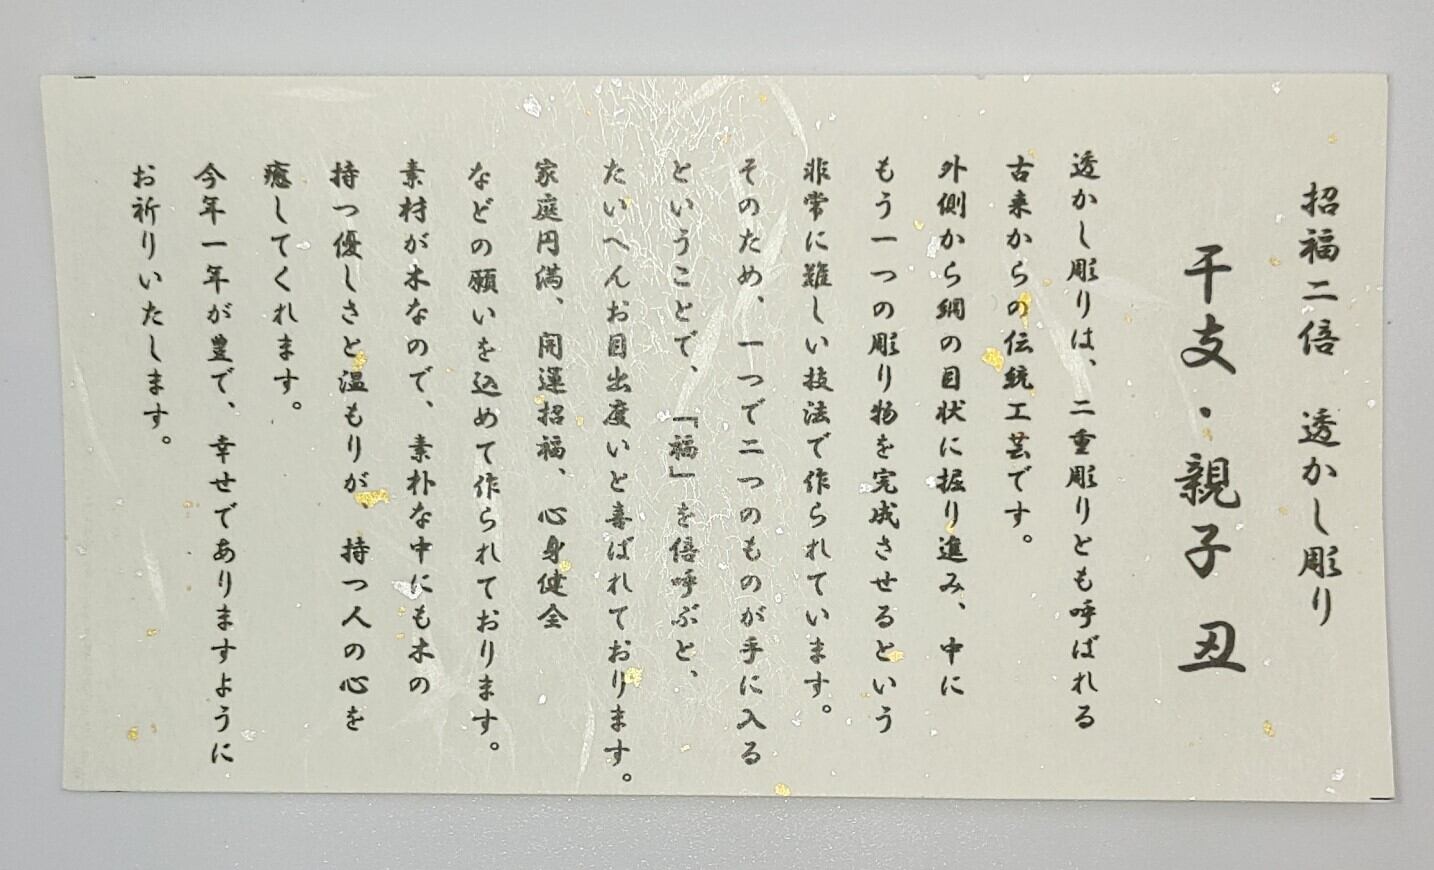 招福二倍　透かし彫り
干支・親子　丑
透かし彫りは、二重彫りとも呼ばれる
古来からの伝統工芸です。
外側から網の目状に掘り進み、中に
もう一つの彫り物を完成させるという
非常に難しい技法で作られています。
そのため、一つで二つのものが手に入る
ということで、「福」を倍呼ぶと、
たいへんお目出度いと喜ばれております。
家庭円満、開運招福、心身健全
などの願いを込めて作られております。
素材が木なので、素朴な中にも木の
持つ優しさと温もりが、持つ人の心を
癒してくれます。
今年一年が豊で、幸せでありますように
お祈りいたします。